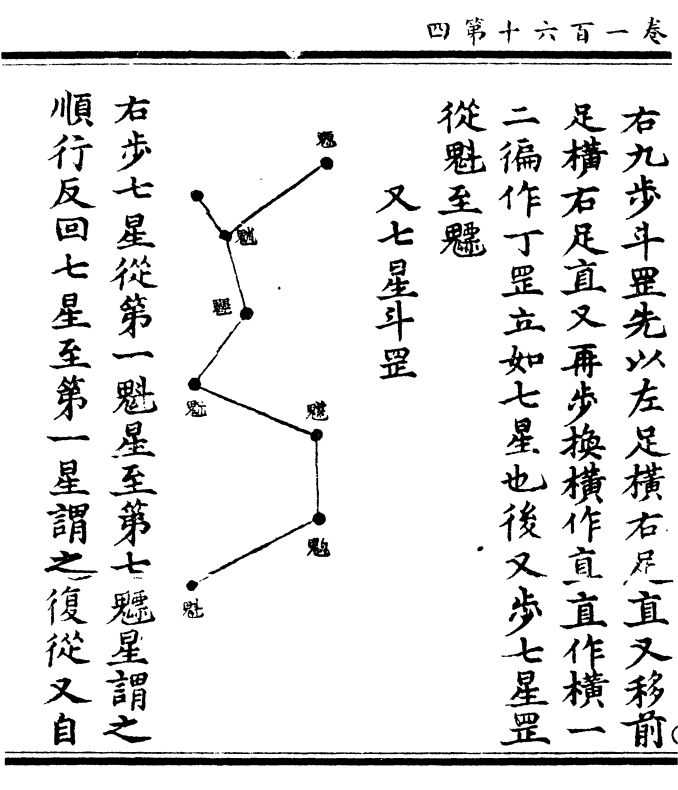 卷一百六十第四
右九步斗罡先以左足橫右足直又移前
足橫右足直又再步換橫作直直作橫一
二徧作丁罡立如七星也後又步七星罡
從魁至魒
又七星斗罡
魒
魓
魁
右步七星從第一魁星至第七魒星謂之
順行反回七星至第一星謂之復從又自